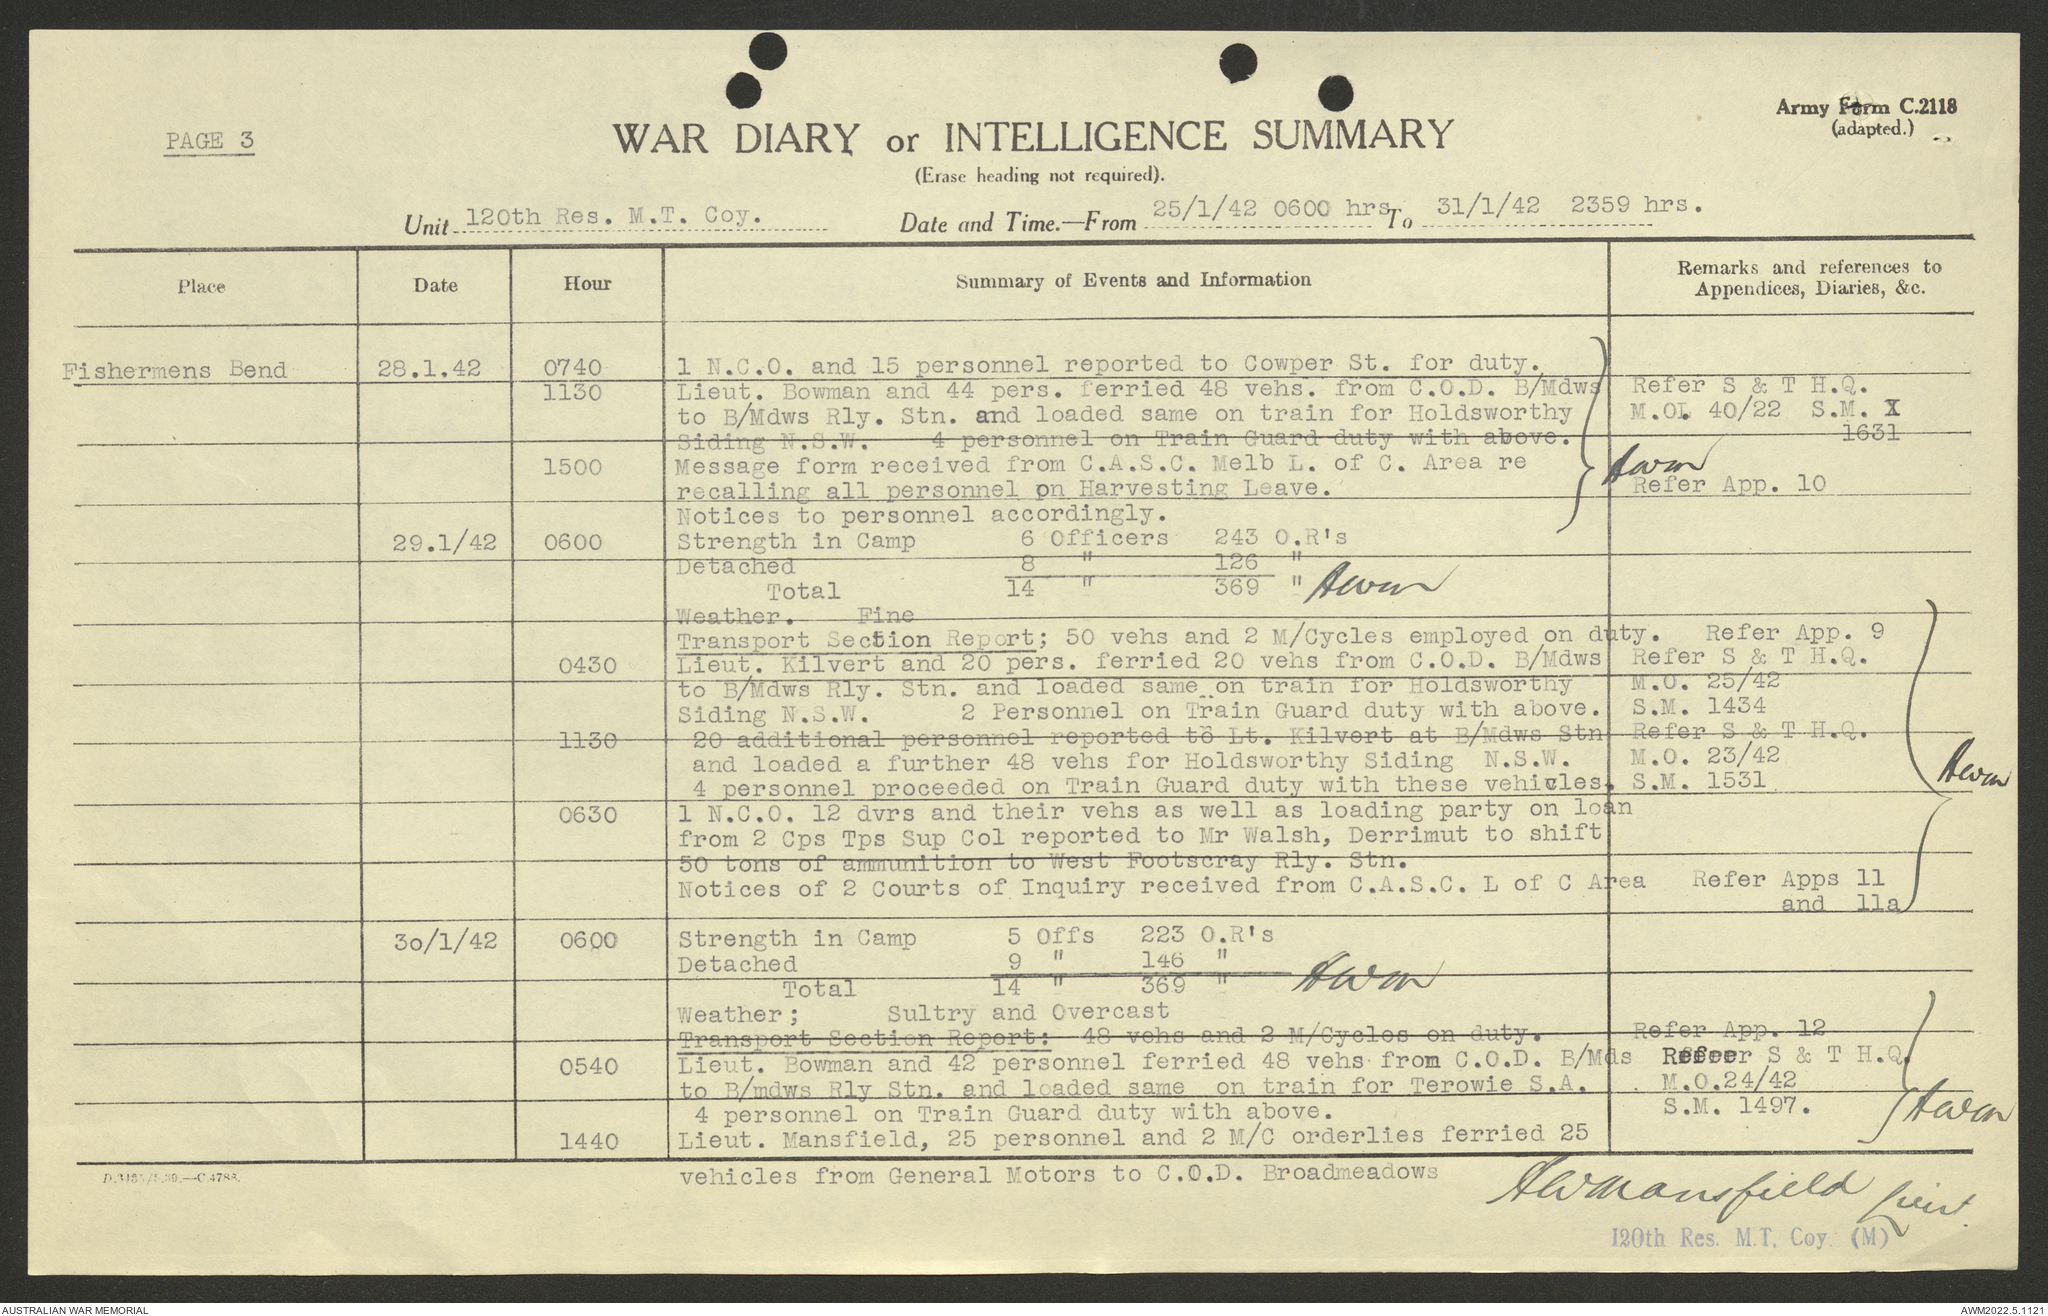 PAGE 3
Army Form C.2118
(adapted.)
WAR DIARY or INTELLIGENCE SUMMARY
(Erase heading not required).
Unit 120th Res. M.T. Coy. Date and Time.—From 25/1/42 0600 hrs To 31/1/42 2359 hrs.
Place Date Hour Summary of Events and Information Remarks and references to Appendices, Diaries, &c.
Fishermens Bend 28.1.42 0740 1 N.C.O. and 15 personnel reported to Cowper St. for duty.
1130 Lieut. Bowman and 44 pers. ferried 48 vehs. from C.O.D. B/Mdws Refer S & T H.Q.
to B/Mdws Rly. Stn. and loaded same on train for Holdsworthy M.OI 40/22 S.M. X
Siding N.S.W. 4 personnel on Train Guard duty with above. 1631
1500 Message form received from C.A.S.C. Melb L. of C. Area re
AWM
recalling all personnel on Harvesting Leave. Refer App. 10
Notices to personnel accordingly.
29.1/42 0600 Strength in Camp 6 Officers 243 O.R's
Detached 8 " 126 "
Total 14 " 369 " AWM
Weather. Fine
Transport Section Report; 50 vehs and 2 M/Cycles employed on duty. Refer App. 9
0430 Lieut. Kilvert and 20 pers. ferried 20 vehs from C.O.D. B/Mdws Refer S & T H.Q.
to B/Mdws Rly. Stn. and loaded same on train for Holdsworthy M.O. 25/42
Siding N.S.W. 2 Personnel on Train Guard duty with above. S.M. 1434
1130 20 additional personnel reported to Lt. Kilvert at B/Mdws Stn Refer S & T H.Q.
and loaded a further 48 vehs for Holdsworthy Siding N.S.W. M.O. 23/42
AWM
4 personnel proceeded on Train Guard duty with these vehicles. S.M. 1531
0630 1 N.C.O. 12 dvrs and their vehs as well as loading party on loan
from 2 Cps Tps Sup Col reported to Mr Walsh, Derrimut to shift
50 tons of ammunition to West Footscray Rly. Stn.
Notices of 2 Courts of Inquiry received from C.A.S.C. L of C Area Refer Apps 11
and 11a
30/1/42 0600 Strength in Camp 5 Offs 223 O.R's
Detached 9 " 146 "
Total 14 " 369 " AWM
Weather; Sultry and Overcast
Transport Section Report: 48 vehs and 2 M/Cycles on duty. Refer App. 12
0540 Lieut. Bowman and 42 personnel ferried 48 vehs from C.O.D. B/Mds Refer S & T H.Q.
to B/mdws Rly Stn. and loaded same on train for Terowie S.A. M.O.24/42
4 personnel on Train Guard duty with above. S.M. 1497.
AWM
1440 Lieut. Mansfield, 25 personnel and 2 M/C orderlies ferried 25
vehicles from General Motors to C.O.D. Broadmeadows
AWMansfield Lieut.
120th Res. M.T. Coy. (M)
AUSTRALIAN WAR MEMORIAL
AWM2022.5.1121